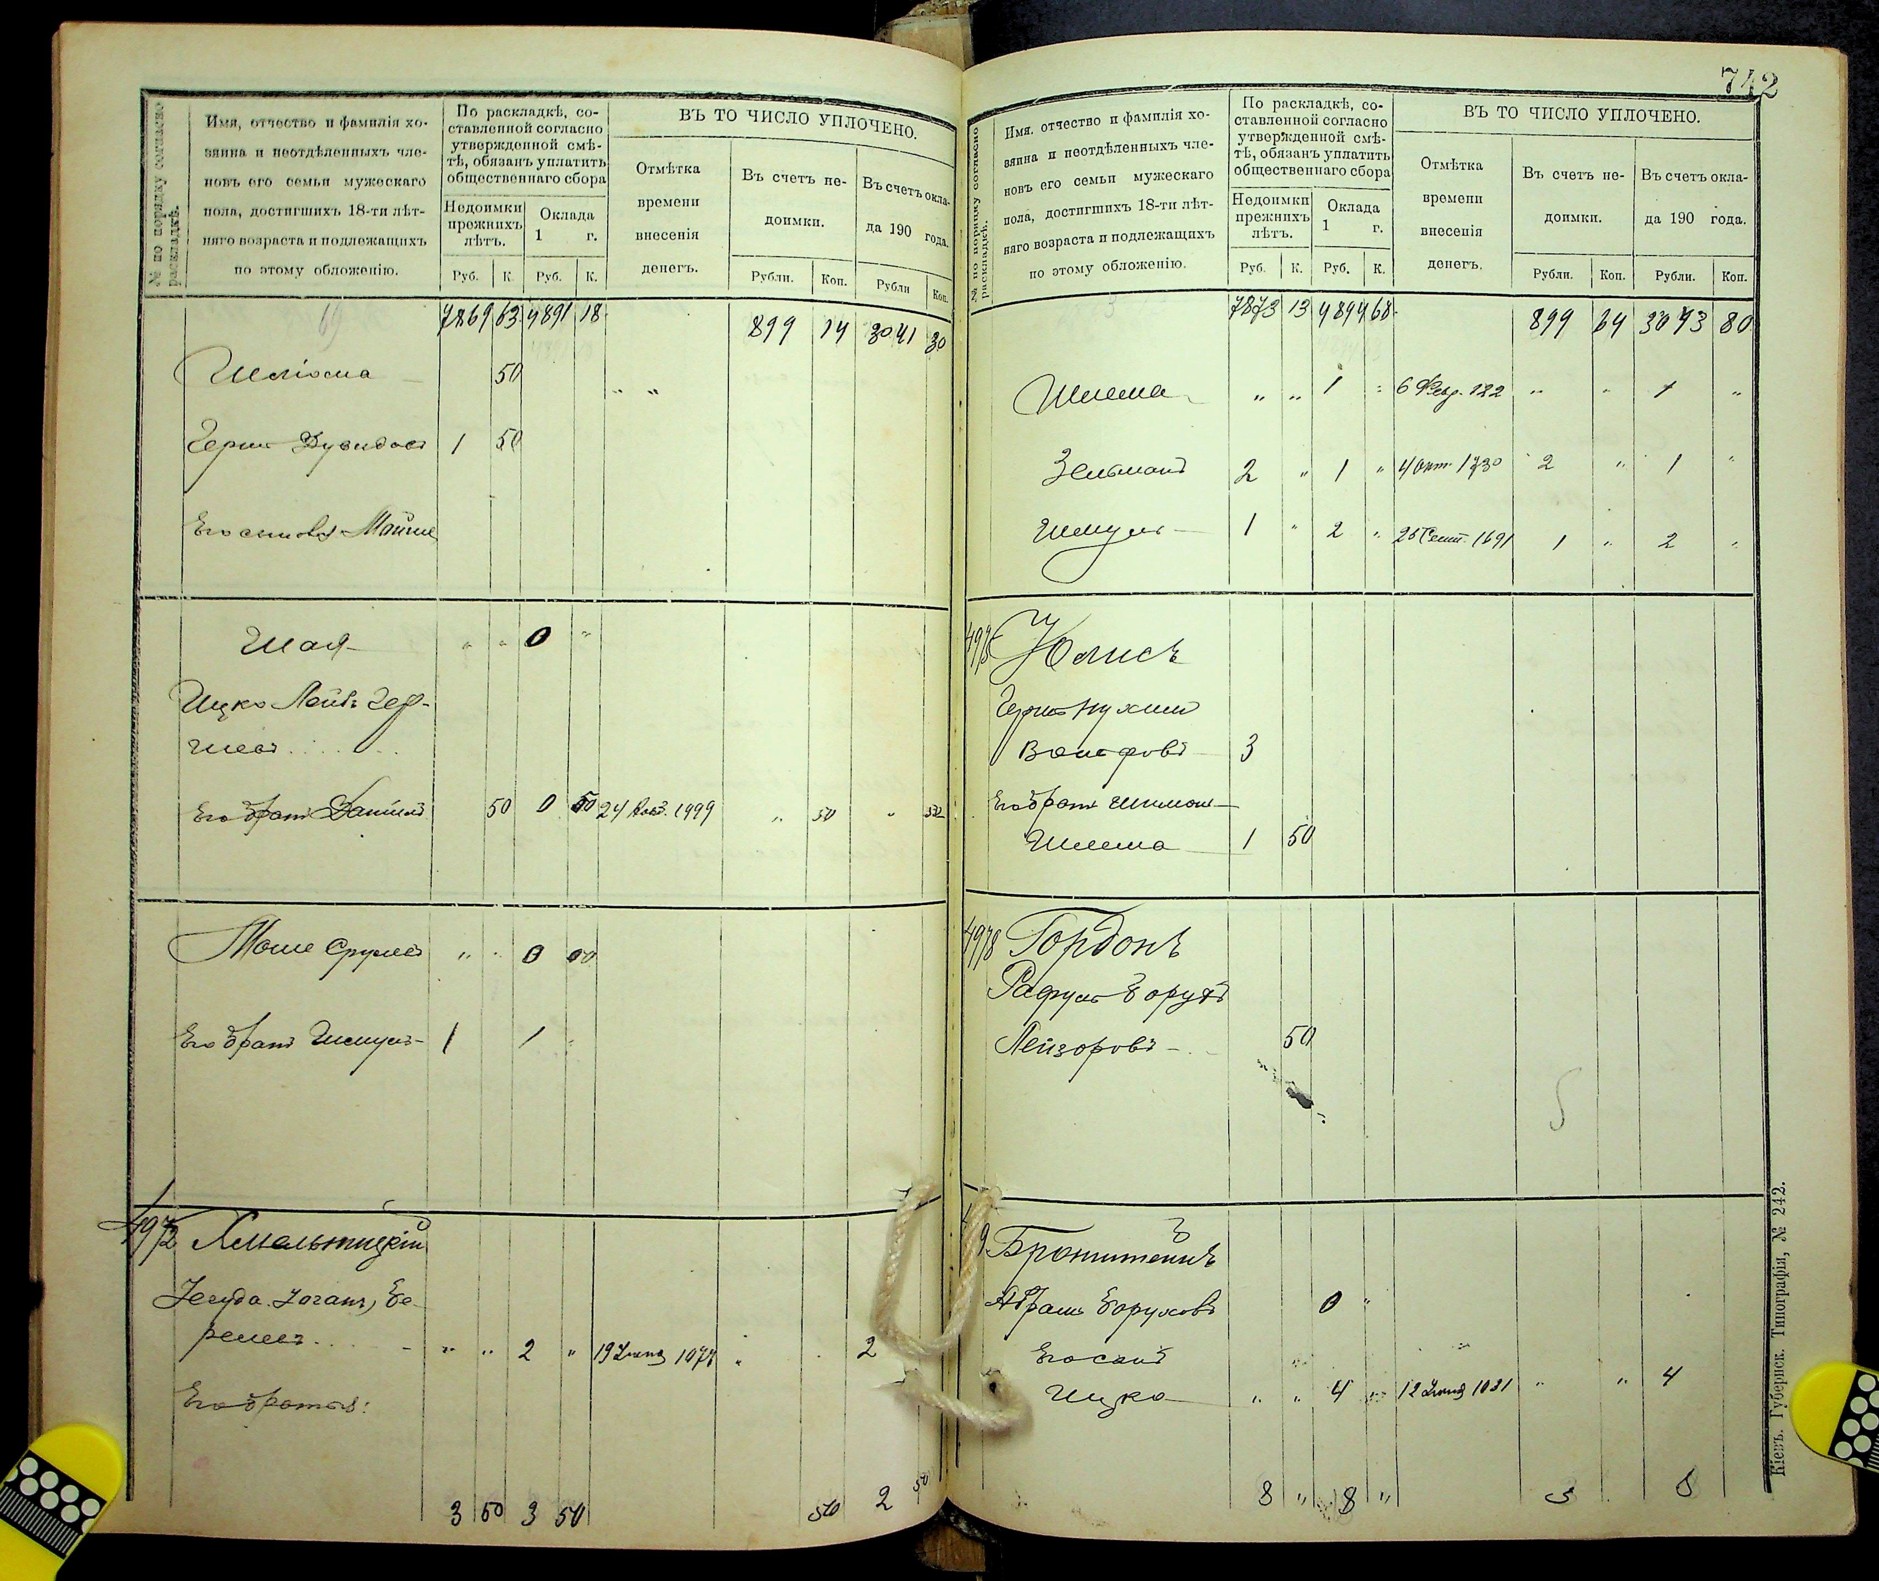 № по порядку согласно раскладкѣ.
Имя, отчество и фамилія хо-
зяина и неотдѣленныхъ чле-
новъ его семьи мужескаго
пола, достигшихъ 18-ти лѣт-
няго возраста и подлежащихъ
по этому обложенію.
По раскладкѣ, со-
ставленной согласно
утвержденной смѣ-
тѣ, обязанъ уплатить
общественнаго сбора
Недоимки
прежнихъ
лѣтъ.
Оклада
1 г.
Руб. К. Руб. К.
ВЪ ТО ЧИСЛО УПЛОЧЕНО.
Отмѣтка
времени
внесенія
денегъ.
Въ счетъ не-
доимки.
Въ счетъ окла-
да 190 года.
Рубли. Коп. Рубли Коп.
7869 63 4891 18 899 14 3041 30
50
Герш 1 50
Его сыновья
Шая " " 0 "
Ицко Лейбъ Гер-
шевъ
Его братъ Даниилъ 50 0 50 " 50 "
Мошe Срулевъ " " 0
Его братъ Шмуль 1 1
4972 Хмельницкій
Іегуда Бе-
релевъ " " 2 " 19 " 2
Его братья:
3 50 3 50 50 2 50
742
№ по порядку согласно раскладкѣ.
Имя, отчество и фамилія хо-
зяина и неотдѣленныхъ чле-
новъ его семьи мужескаго
пола, достигшихъ 18-ти лѣт-
няго возраста и подлежащихъ
по этому обложенію.
По раскладкѣ, со-
ставленной согласно
утвержденной смѣ-
тѣ, обязанъ уплатить
общественнаго сбора
Недоимки
прежнихъ
лѣтъ.
Оклада
1 г.
Руб. К. Руб. К.
ВЪ ТО ЧИСЛО УПЛОЧЕНО.
Отмѣтка
времени
внесенія
денегъ.
Въ счетъ не-
доимки.
Въ счетъ окла-
да 190 года.
Рубли. Коп. Рубли. Коп.
7873 13 4894 68 899 64 3043 80
Шлема " " 1 " 6 Февр. 122 " " 1 "
Зельманъ 2 " 1 " 4 Окт. 1730 2 " 1 "
Шмуль 1 " 2 " 25 Сент. 1691 1 " 2 "
Юлисъ
Герш Нухим
Вольфовъ 3
Его братъ Шимон
Шлема 1 50
4978 Гордонъ
Рафуль Борухъ
Лейзоровъ 50
9 Бронштейнъ
Абрамъ Боруховъ 0 "
Его сынъ
Ицко " " 4 " 12 Іюня 1031 " " 4
8 " 8 " 3 8
Кіевъ. Губернск. Типографія, № 242.